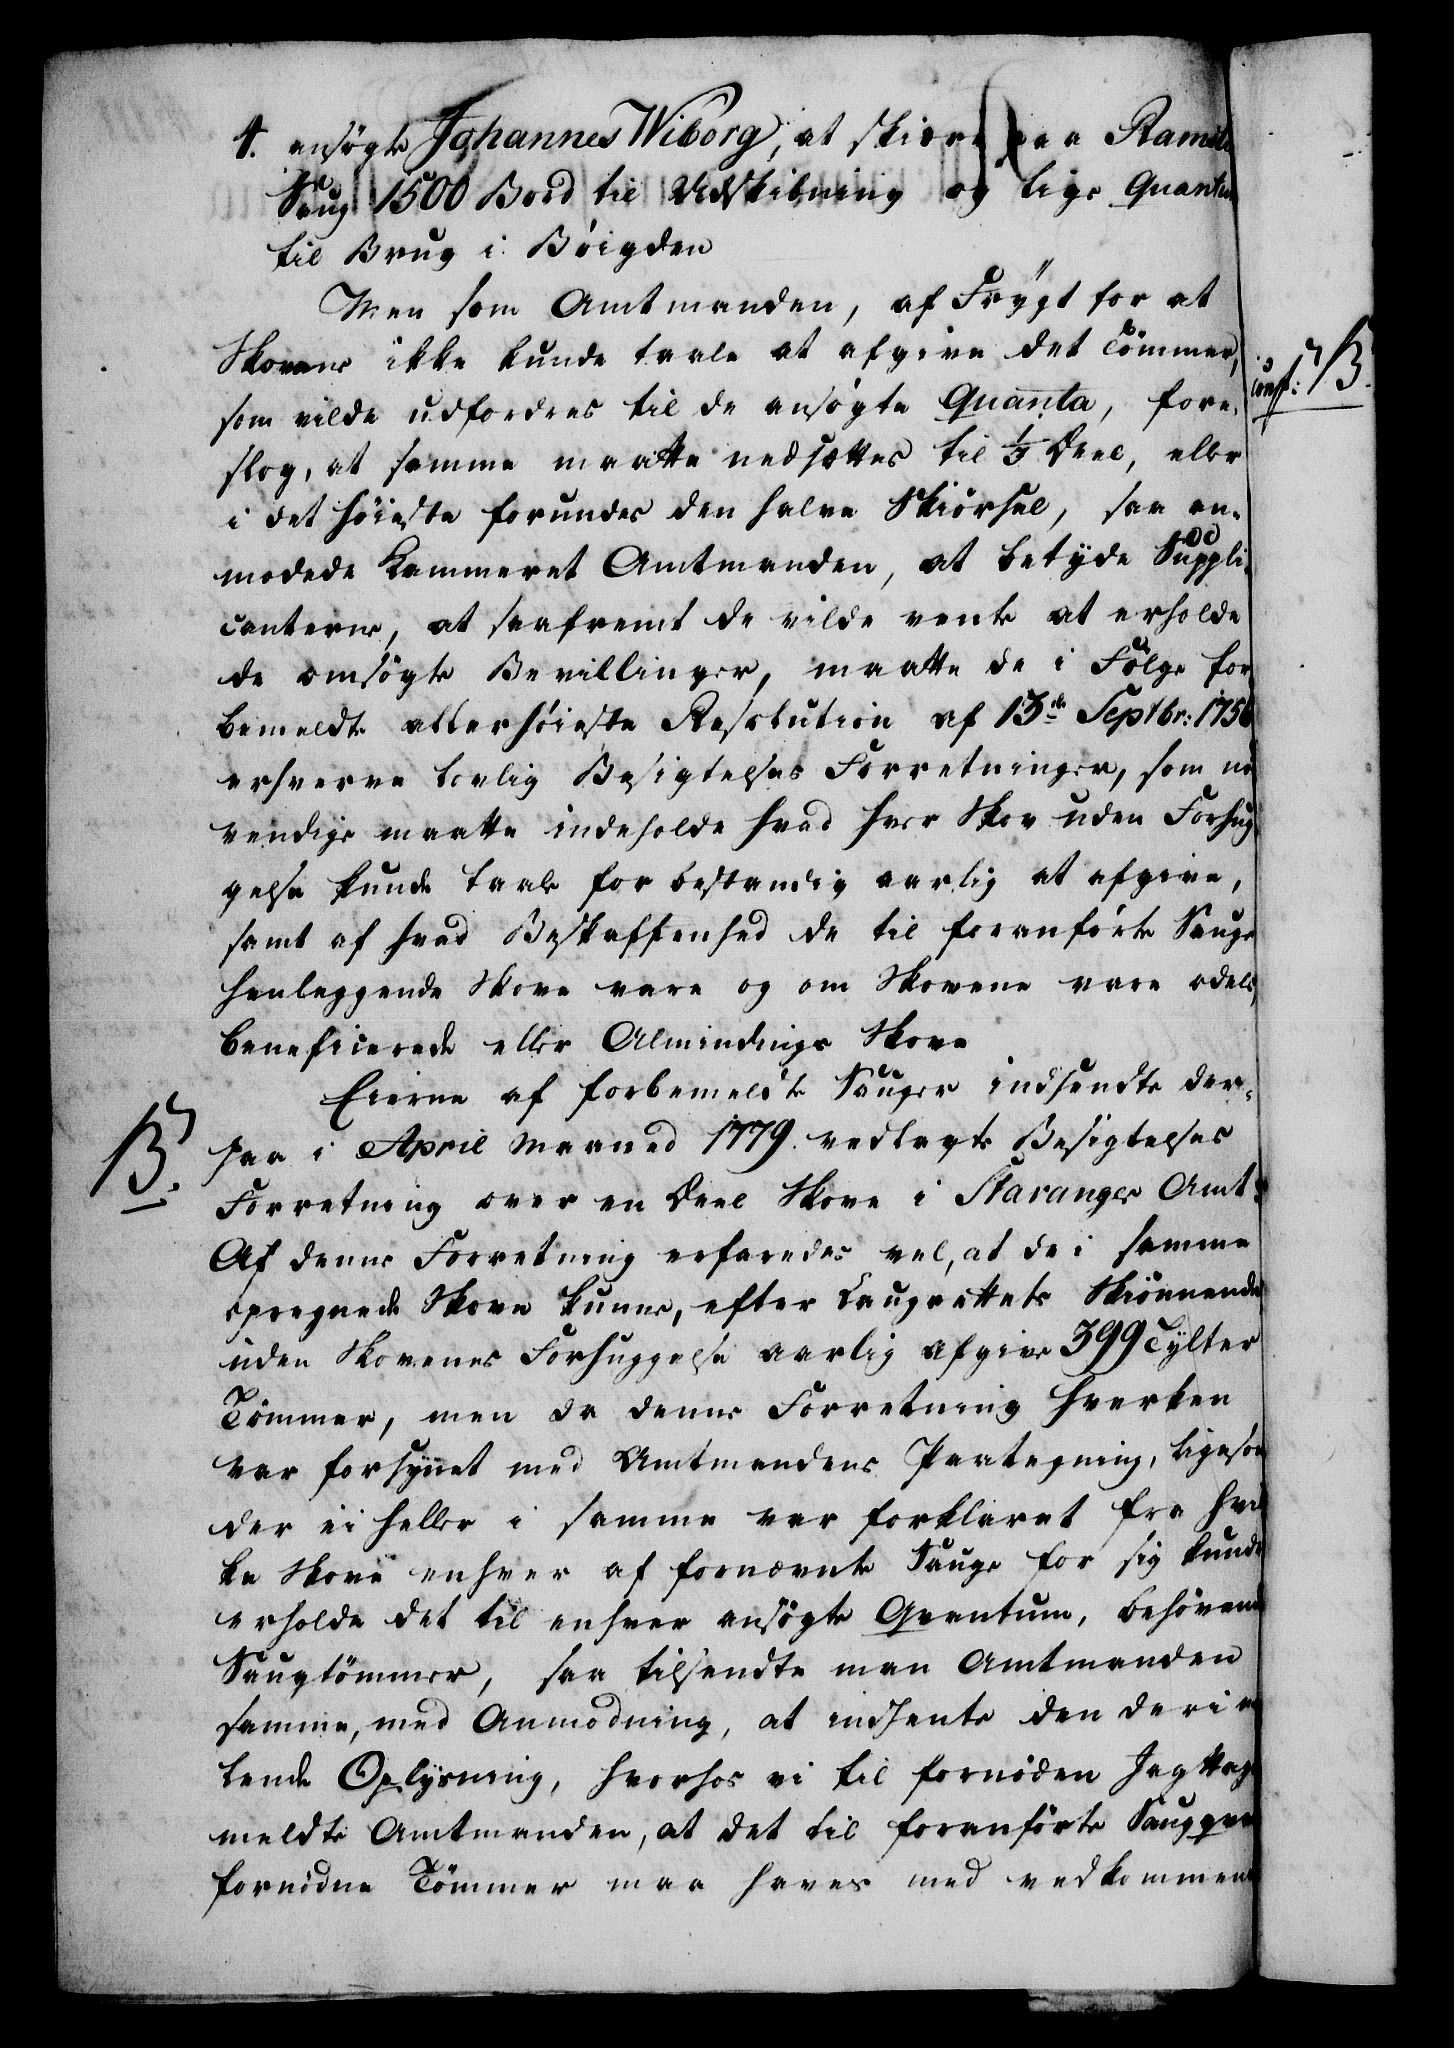 4. ansøgte Johannes Wiborg, at skiære paa
Saug 1500 Bord til Udskibning og lige Quantum
til Brug i Bøigden
Men som Amtmanden, af Frygt for at
Skovene ikke kunde taale at afgive det Tømmer,
som vilde udfordres til de ansøgte Quanta, fore-
slog, at samme maatte nedsættes til 1/3 Deel, eller
i det høieste forundes den halve Skiørsel, saa an-
modede Kammeret Amtmanden, at betyde Suppli-
canterne, at saafremt de vilde vente at erholde
de omsøgte Bevillinger, maatte de i Følge for
bemeldte allerhøieste Resolution af 13de Septbr: 1756
erhverve lovlig Besigtelses Forretninger, som nød
vendige maatte indeholde hvad hver Skov uden Forhug
gelse kunde taale for bestandig aarlig at afgive,
samt af hvad Beskaffenhed de til foranførte Sauge
henlæggende Skove vare og om Skovene vare odels
beneficerede eller Almindings Skove
Eierne af forbemeldte Sauger indsendte der-
B. paa i April Maaned 1779 vedlagte Besigtelses
Forretning over en Deel Skove i Stavanger Amt
Af denne Forretning erfaredes vel, at de i samme
opregnede Skove kunne, efter Laugrettets Skiønnende
uden Skovenes Forhuggelse aarlig afgive 399 Tylter
Tømmer, men da denne Forretning hverken
var forsynet med Amtmandens Paategning, ligesom
der ei heller i samme var forklaret fra hvil
ke Skove enhver af fornævnte Sauge for sig kunde
erholde det til enhver ansøgte Qvantum, behøvende
Saugtømmer, saa tilsendte man Amtmanden
samme, med Anmodning, at indhente den deri
lende Oplysning, hvorhos vi til fornøden Iagttagelse
meldte Amtmanden, at det til foranførte
fornødne Tømmer maa haves med vedkommende
B.